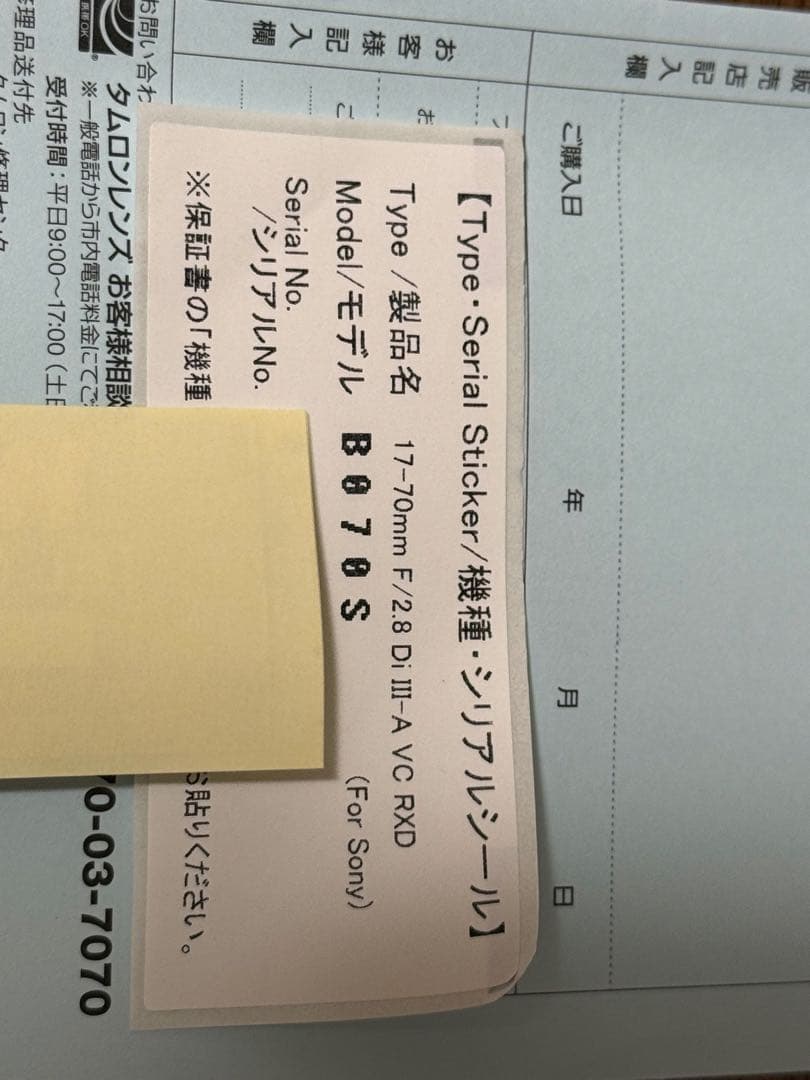 販売店記入欄
ご購入日 年 月 日
お客様記入欄
【Type・Serial Sticker/機種・シリアルシール】
Type /製品名 17-70mm F/2.8 Di III-A VC RXD
Model/モデル B070S (For Sony)
Serial No.
/シリアルNo.
※保証書の「機種
お貼りください。
お問い合わ
タムロンレンズ お客様相談
70-03-7070
※一般電話から市内電話料金にてご
受付時間:平日9:00~17:00(土日
理品送付先